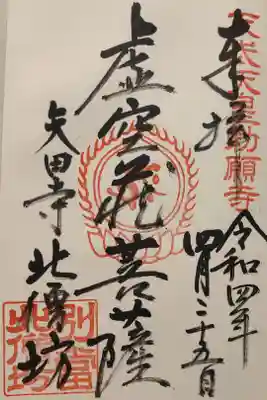 奉拝
天武天皇勅願寺
令和四年
四月二十五日
虚空蔵菩薩
矢田寺 北僧坊
別當
北僧坊